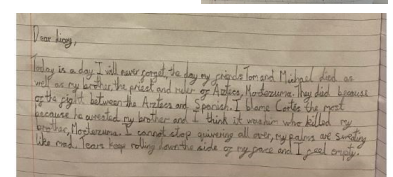 Dear diary,
Today is a day I will never forget, the day my friends Tom and Michael died as
well as my brother, the priest and ruler of Aztecs, Moctezuma. They died because
of the fight between the Aztecs and Spanish. I blame Cortés the most
because he arrested my brother and I think it was him who killed my
brother, Moctezuma. I cannot stop quivering all over, my palms are sweating
like mad. Tears keep rolling down the side of my face and I feel empty.